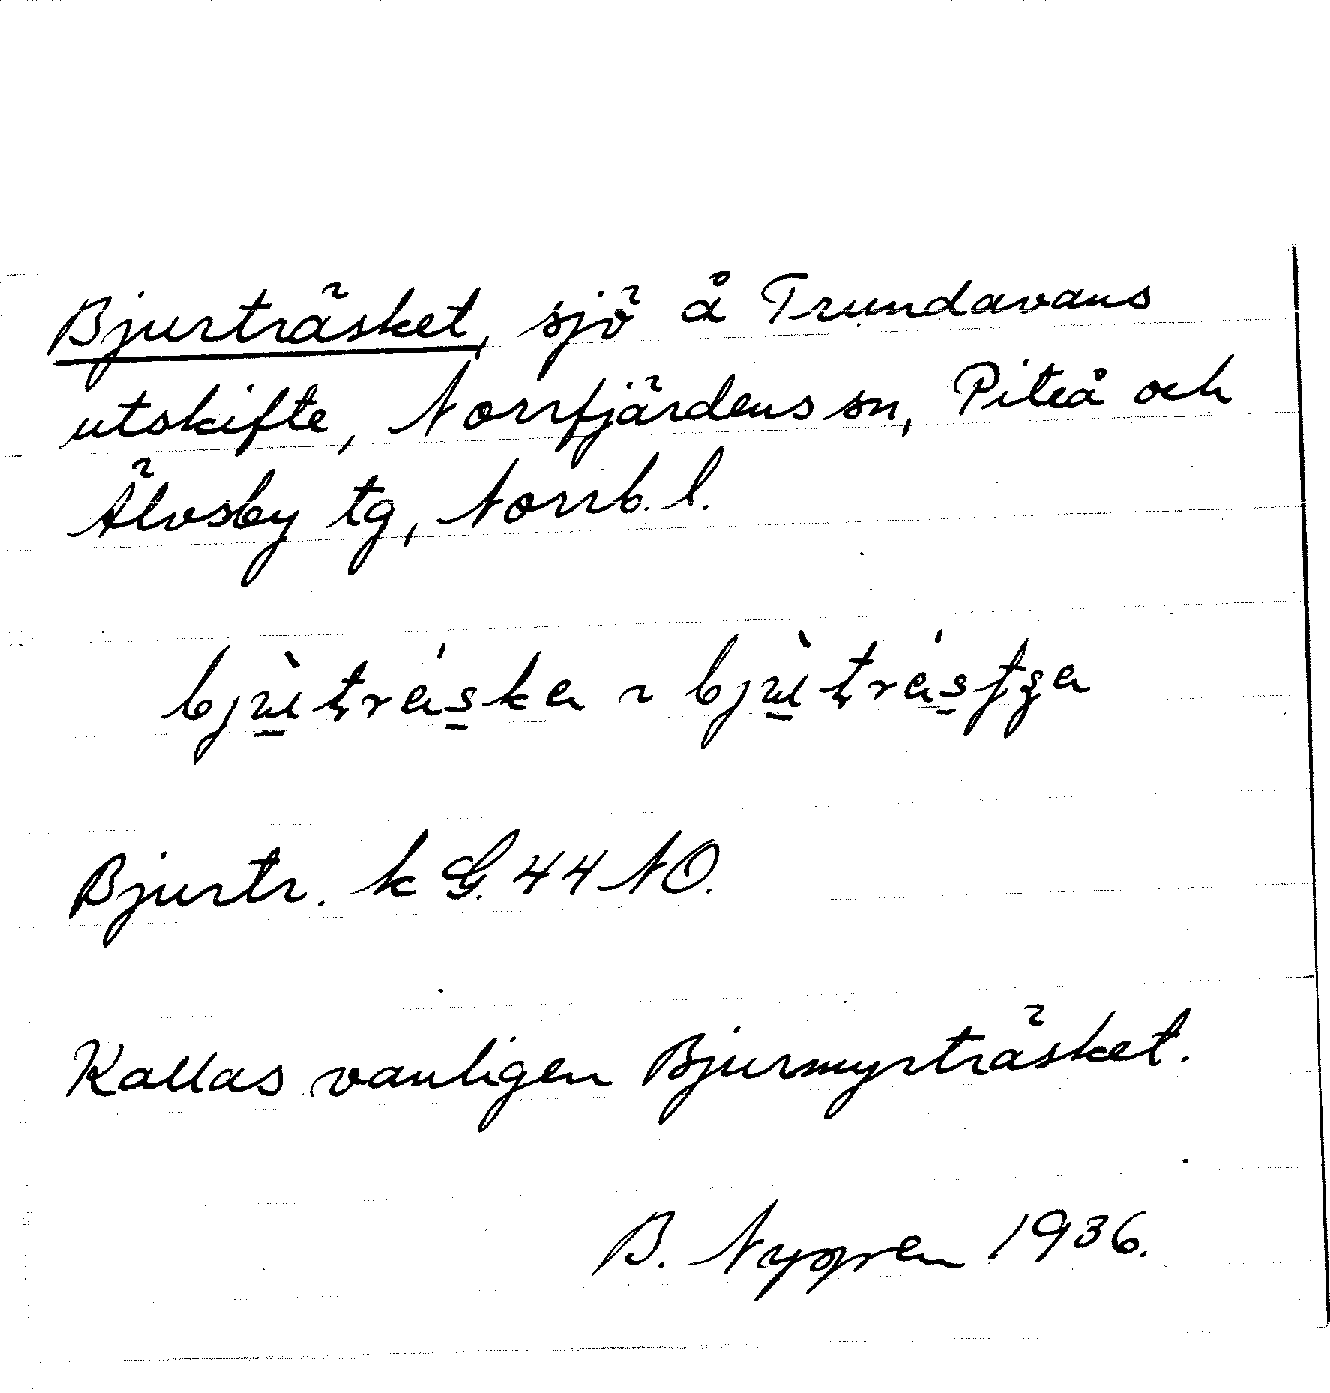 Bjurträsket, sjö å Trundavans
utskifte, Norrfjärdens sn, Piteå och
Älvsby tg, Norrb. l.
Bjurtr. k G. 44 NO.
Kallas vanligen Bjurmyrträsket.
B. Nygren 1936.